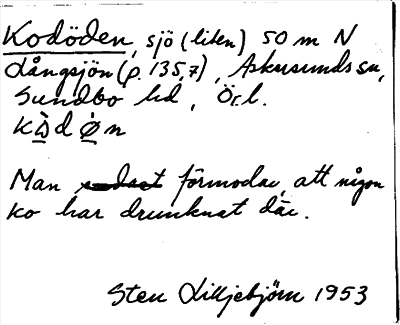 Kodöden, sjö (liten) 50 m N
Långsjön (p. 135,7), Askersunds sn,
Sundbo hd, Örl.
kὰdø̀n
Man endast förmodar, att någon
ko har drunknat där.
Sten Lilljebjörn 1953